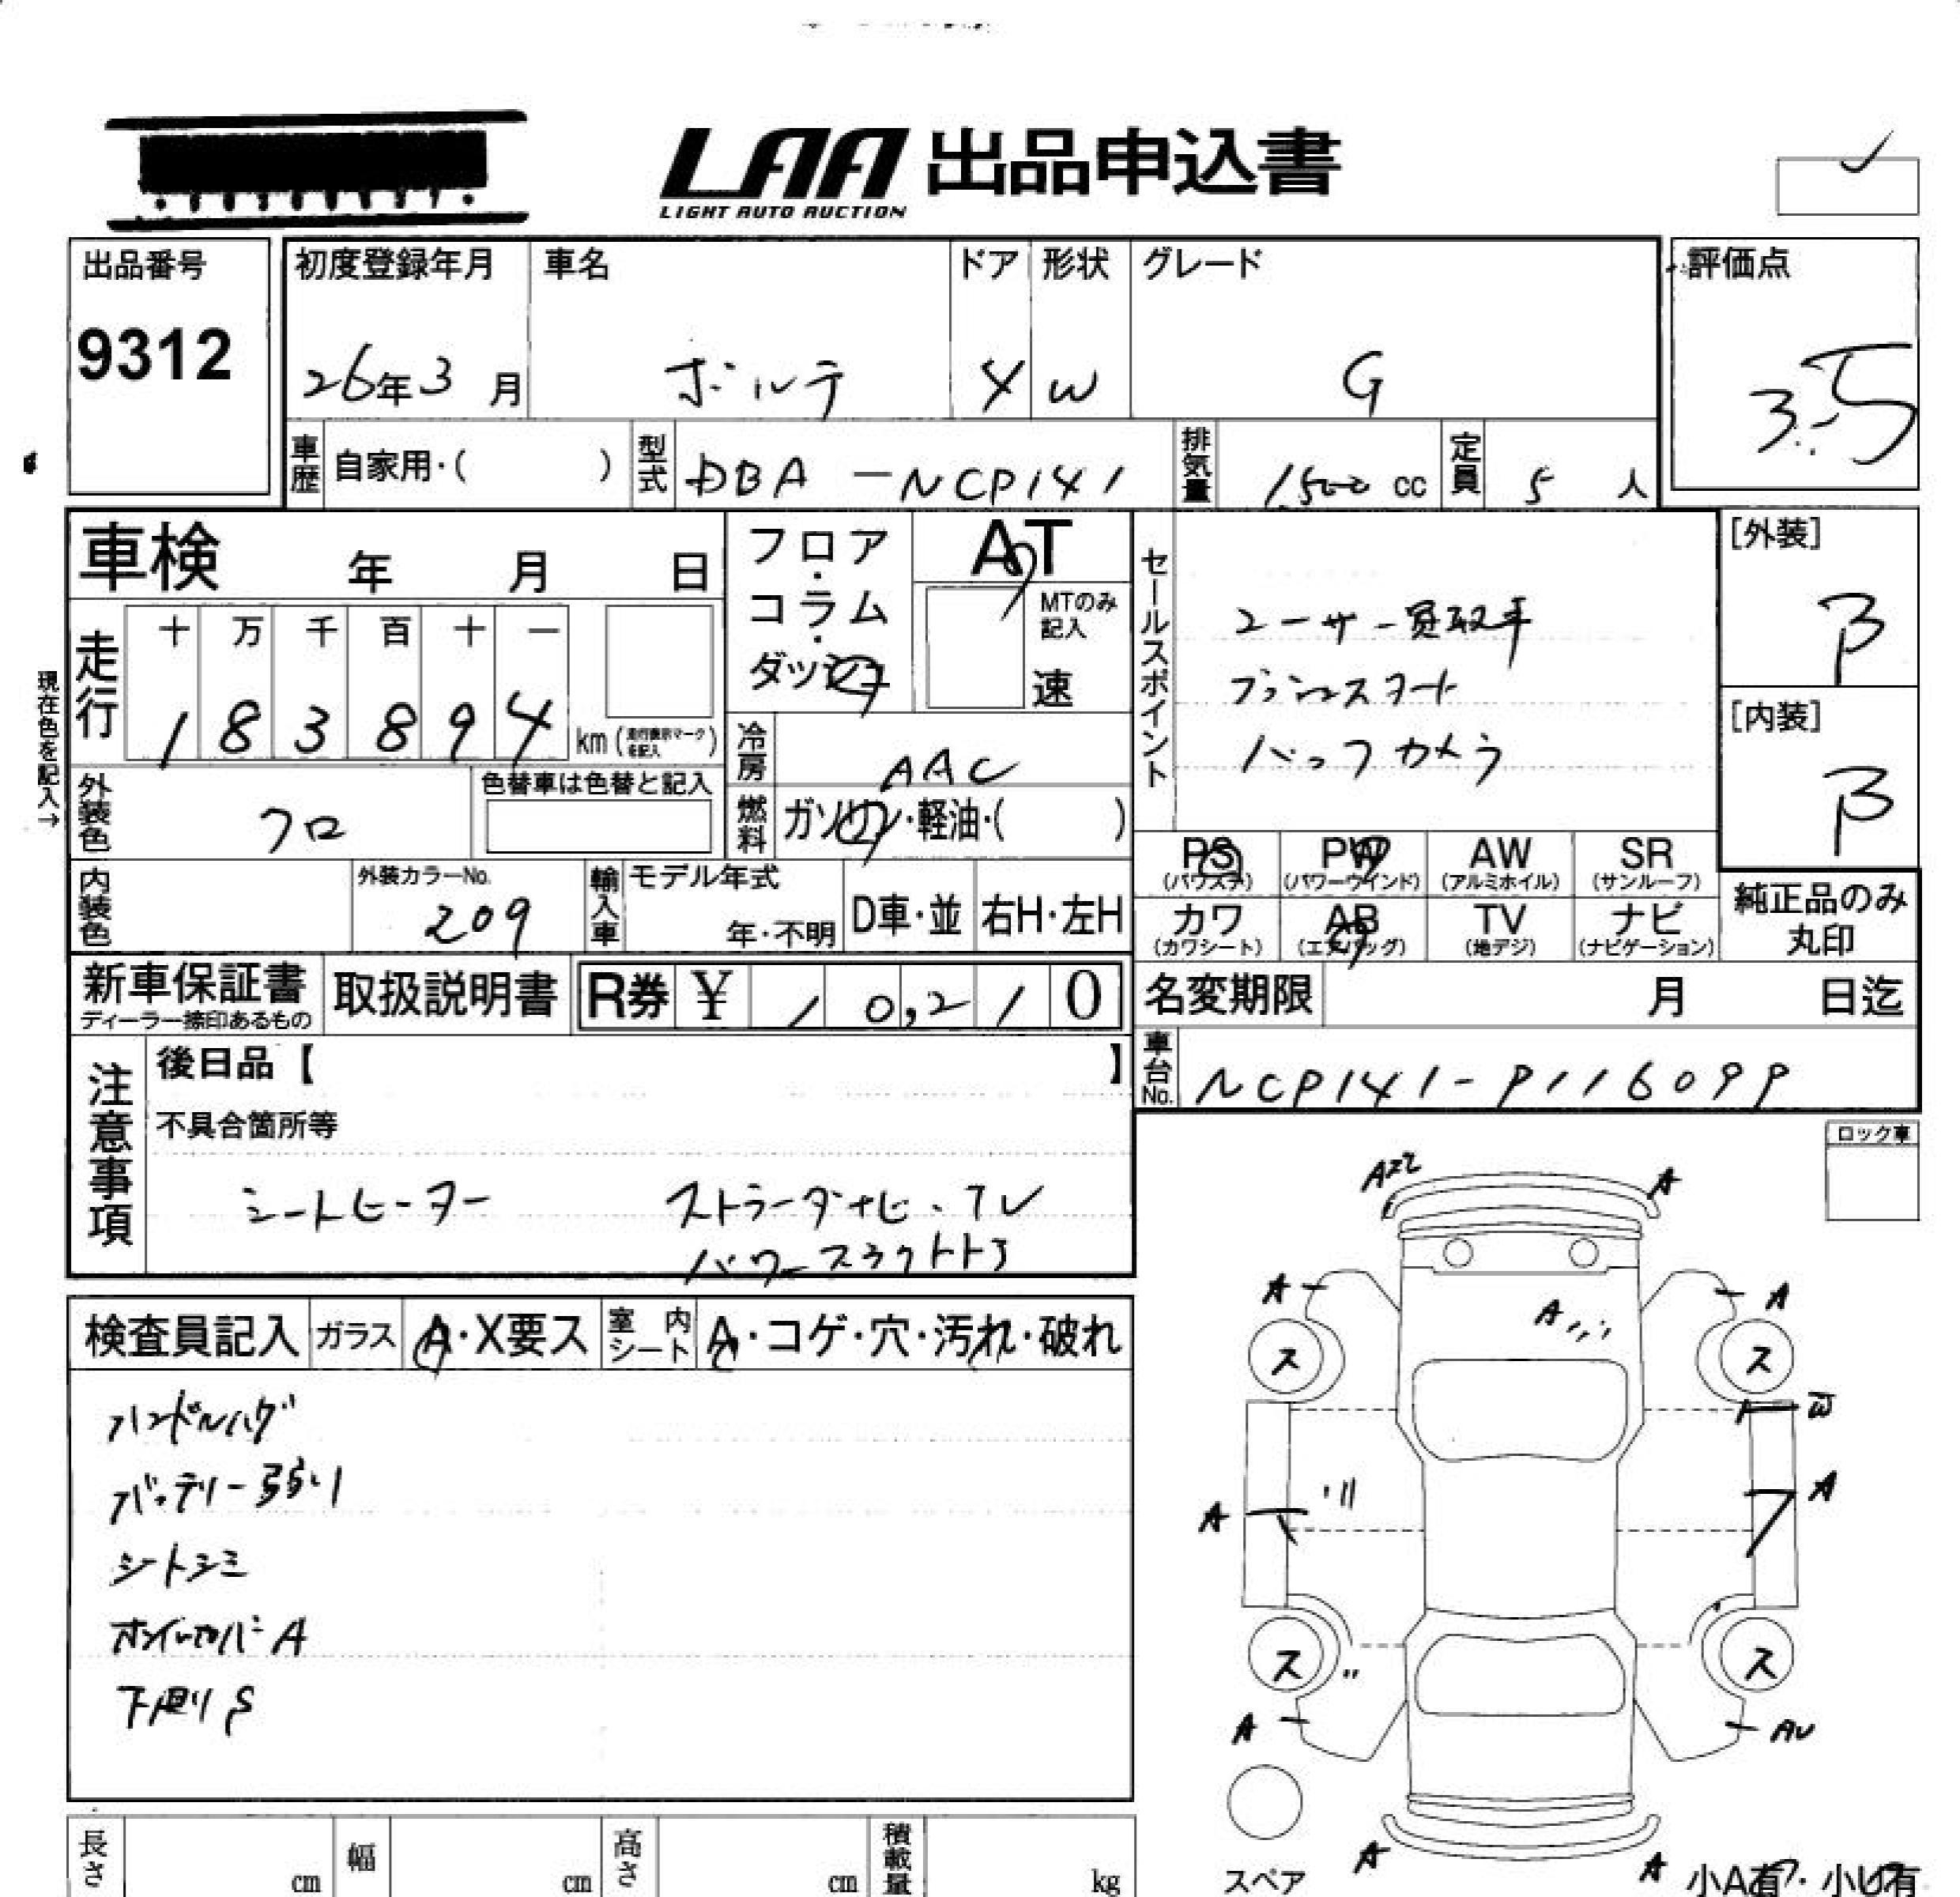 LAA 出品申込書
LIGHT AUTO AUCTION
出品番号
9312
初度登録年月
26年3月
車名
ポルテ
ドア
4
形状
W
グレード
G
評価点
3.5
車歴
自家用・( )
型式
DBA-NCP141
排気量
1,500 cc
定員
5 人
車検 年 月 日
フロア・コラム・ダッシュ
AT
MTのみ記入
速
セールスポイント
ユーザー買取車
プッシュスタート
バックカメラ
[外装]
B
[内装]
B
現在色を記入→
走行
十 万 千 百 十 一
1 8 3 8 9 4
km (走行表示マークを記入)
冷房
AAC
燃料
ガソリン・軽油・( )
外装色
クロ
色替車は色替と記入
内装色
外装カラーNo.
209
輸入車
モデル年式
年・不明
D車・並
右H・左H
PS (パワステ)
PW (パワーウインド)
AW (アルミホイル)
SR (サンルーフ)
カワ (カワシート)
AB (エアバッグ)
TV (地デジ)
ナビ (ナビゲーション)
純正品のみ
丸印
新車保証書
ディーラー捺印あるもの
取扱説明書
R券 ¥ 10,210
名変期限 月 日迄
車台No.
NCP141-9116099
注意事項
後日品【 】
不具合箇所等
シートヒーター ストラーダナビ・TV
パワースライドドア
ロック車
検査員記入
ガラス
A・X要ス
室内シート
A・コゲ・穴・汚れ・破れ
ハンドルハゲ
バッテリー弱い
シートシミ
ホイールカバーA
下廻りS
A
A
A
A
A
ス
ス
W
A
A
ス
ス
A
AU
A
A
スペア
小A有・小U有
長さ cm
幅 cm
高さ cm
積載量 kg